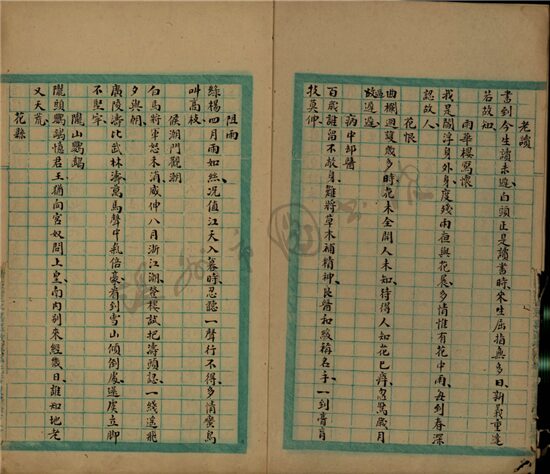 老讀
書到今生讀未遲白頭正是讀書時來生屈指無多日新我重逢
若故知
雨華樓寫懷
我是閻浮身外身度殘雨夜與花晨多情惟有花中雨每到春深
認故人
花恨
曲欄迴護幾多時花未全開人未知待得人知花已忽驚歲月
故遲遲
病中却醫
百歲誰留不敝身難將草木補精神良醫和緩稱名手一到膏肓
技莫伸
阻雨
綠楊四月雨如絲况值江天入暮時忽聽一聲行不得多情黃鳥
叫高枝
候潮門觀潮
白馬將軍怒未消威伸八月浙江潮登樓試把濤頭認一綫遙飛
夕與朝
廣陵濤比武林濤萬馬聲中氣倍豪看到雪山傾倒處虞立脚
不堅牢
隴山鸚鵡
隴頭鸚鵡憶君王猶向宮奴問上皇南內到來經幾日誰知地老
又天荒
花縣